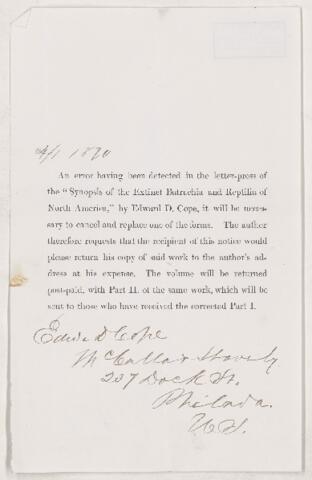 4/1 1870
An error having been detected in the letter-press of
the "Synopsis of the Extinct Batrachia and Reptilia of
North America," by Edward D. Cope, it will be neces-
sary to cancel and replace one of the forms. The author
therefore requests that the recipient of this notice would
please return his copy of said work to the author's ad-
dress at his expense. The volume will be returned
post-paid, with Part II. of the same work, which will be
sent to those who have received the corrected Part I.
Edw. D Cope
McCalla & Stavely
237 Dock St.
Philada.
U.S.